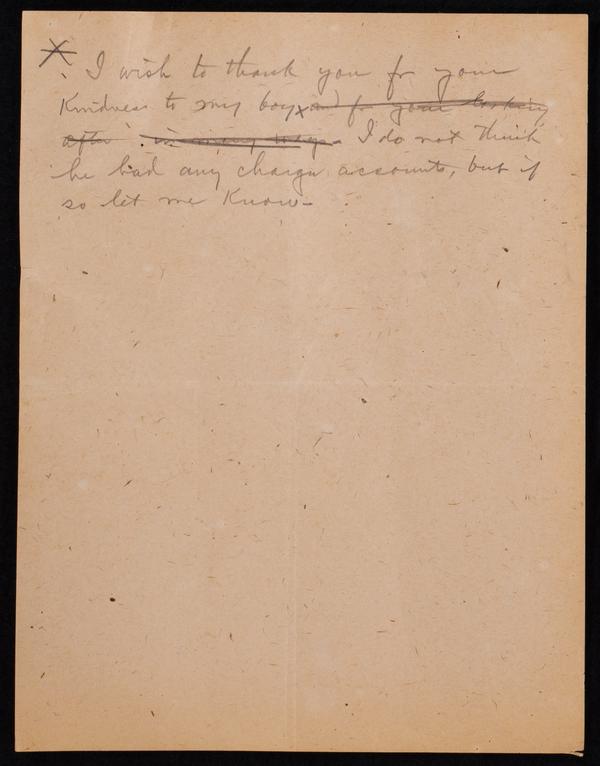 X. I wish to thank you for your
Kindness to my boy x and for your looking
after in many ways. I do not think
he had any charge accounts, but if
so let me Know -